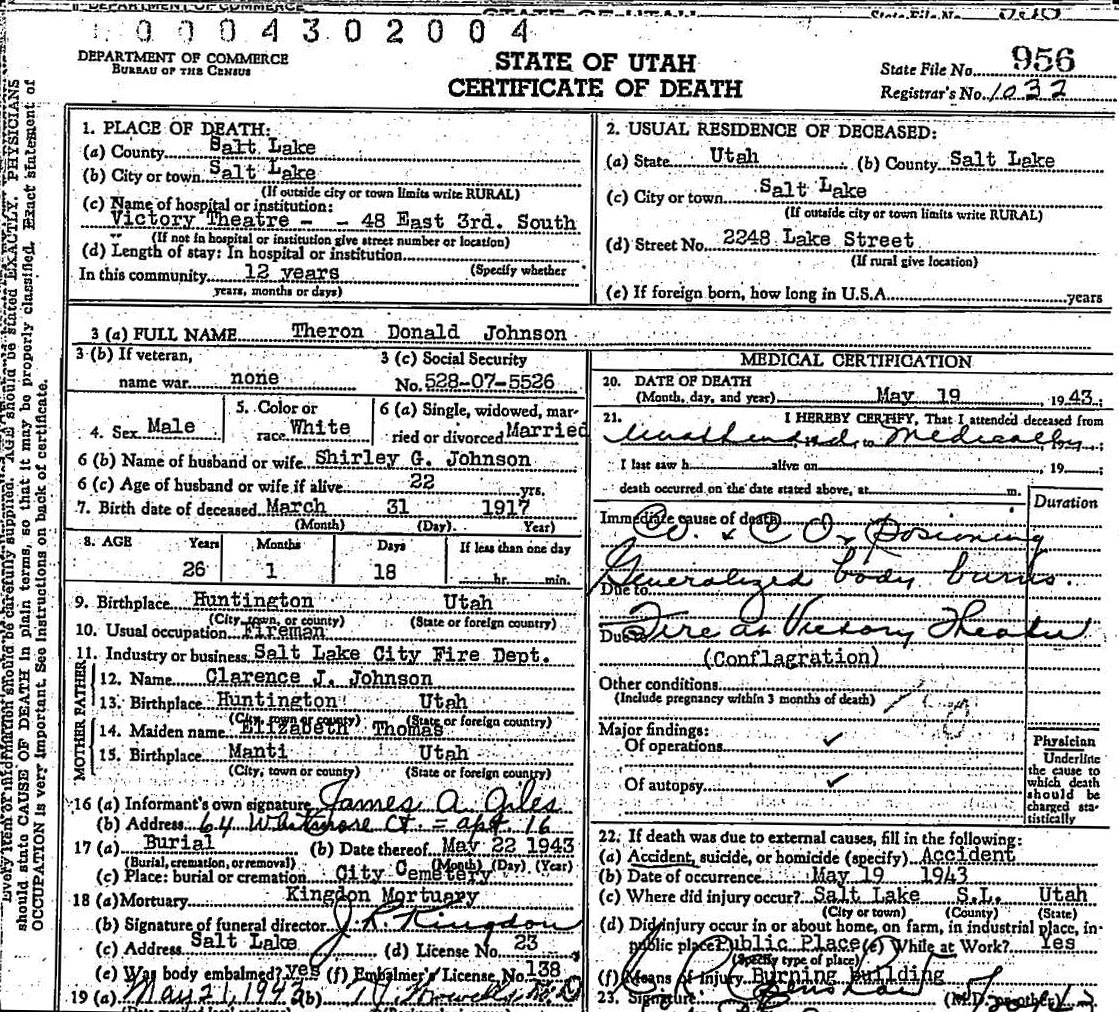 DEPARTMENT OF COMMERCE
STATE OF UTAH
State File No.
0 0 0 4 3 0 2 0 0 4
DEPARTMENT OF COMMERCE
BUREAU OF THE CENSUS
STATE OF UTAH
CERTIFICATE OF DEATH
State File No. 956
Registrar's No. 1032
Every item of information should be carefully supplied. AGE should be stated EXACTLY. PHYSICIANS
should state CAUSE OF DEATH in plain terms, so that it may be properly classified. Exact statement of
OCCUPATION is very important. See instructions on back of certificate.
1. PLACE OF DEATH:
(a) County Salt Lake
(b) City or town Salt Lake
(If outside city or town limits write RURAL)
(c) Name of hospital or institution:
Victory Theatre - - 48 East 3rd. South
(If not in hospital or institution give street number or location)
(d) Length of stay: In hospital or institution
(Specify whether
In this community 12 years
years, months or days)
2. USUAL RESIDENCE OF DECEASED:
(a) State Utah (b) County Salt Lake
(c) City or town Salt Lake
(If outside city or town limits write RURAL)
(d) Street No. 2248 Lake Street
(If rural give location)
(e) If foreign born, how long in U.S.A. years
3 (a) FULL NAME Theron Donald Johnson
3 (b) If veteran,
name war none
3 (c) Social Security
No. 528-07-5526
4. Sex Male
5. Color or
race White
6 (a) Single, widowed, mar-
ried or divorced Married
6 (b) Name of husband or wife Shirley G. Johnson
6 (c) Age of husband or wife if alive 22 yrs.
7. Birth date of deceased March 31 1917
(Month) (Day) Year)
8. AGE Years Months Days If less than one day
26 1 18 hr. min.
9. Birthplace Huntington Utah
(City, town, or county) (State or foreign country)
10. Usual occupation Fireman
11. Industry or business Salt Lake City Fire Dept.
FATHER
12. Name Clarence J. Johnson
13. Birthplace Huntington Utah
(City, town or county) (State or foreign country)
MOTHER
14. Maiden name Elizabeth Thomas
15. Birthplace Manti Utah
(City, town or county) (State or foreign country)
16 (a) Informant's own signature James A. Giles
(b) Address 64 Whitmore Ct = apt. 16
17 (a) Burial (b) Date thereof May 22 1943
(Burial, cremation, or removal) (Month) (Day) (Year)
(c) Place: burial or cremation City Cemetery
18 (a) Mortuary Kingdon Mortuary
(b) Signature of funeral director J. K. Kingdon
(c) Address Salt Lake (d) License No. 23
(e) Was body embalmed? yes (f) Embalmer's License No. 138
19 (a) May 21, 1943 (b)
MEDICAL CERTIFICATION
20. DATE OF DEATH
(Month, day, and year) May 19 , 1943;
21. I HEREBY CERTIFY, That I attended deceased from
Unattended Medically
I last saw h alive on , 19 ;
death occurred on the date stated above, at m.
Duration
Immediate cause of death
CO2 & CO Posioning
Generalized body burns.
Due to
Due to Fire at Victory Theater
(Conflagration)
Other conditions
(Include pregnancy within 3 months of death)
Major findings:
Of operations ✓
Of autopsy ✓
Physician
Underline
the cause to
which death
should be
charged sta-
tistically
22. If death was due to external causes, fill in the following:
(a) Accident, suicide, or homicide (specify) Accident
(b) Date of occurrence May 19 1943
(c) Where did injury occur? Salt Lake S.L. Utah
(City or town) (County) (State)
(d) Did injury occur in or about home, on farm, in industrial place, in
public place? Public Place (e) While at Work? Yes
(Specify type of place)
(f) Means of Injury Burning Building
23. Signature (M.D. or other)